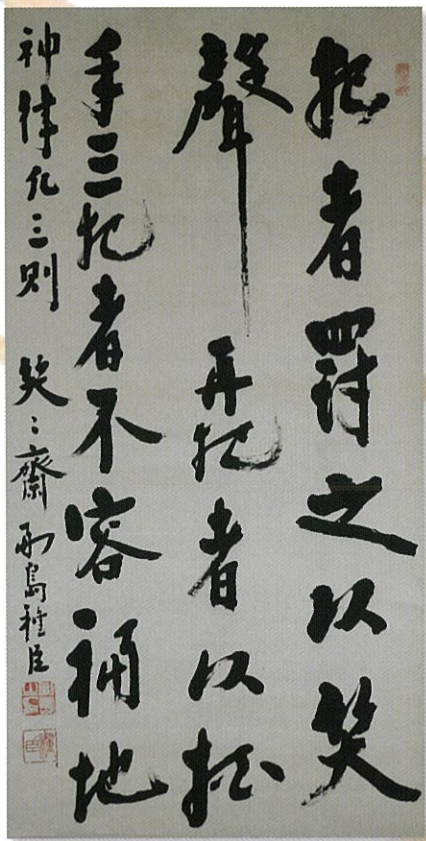 犯者罰之以笑
聲再犯者以拍
手三犯者不容補地
神律凡三則 笑〻齋 副島種臣